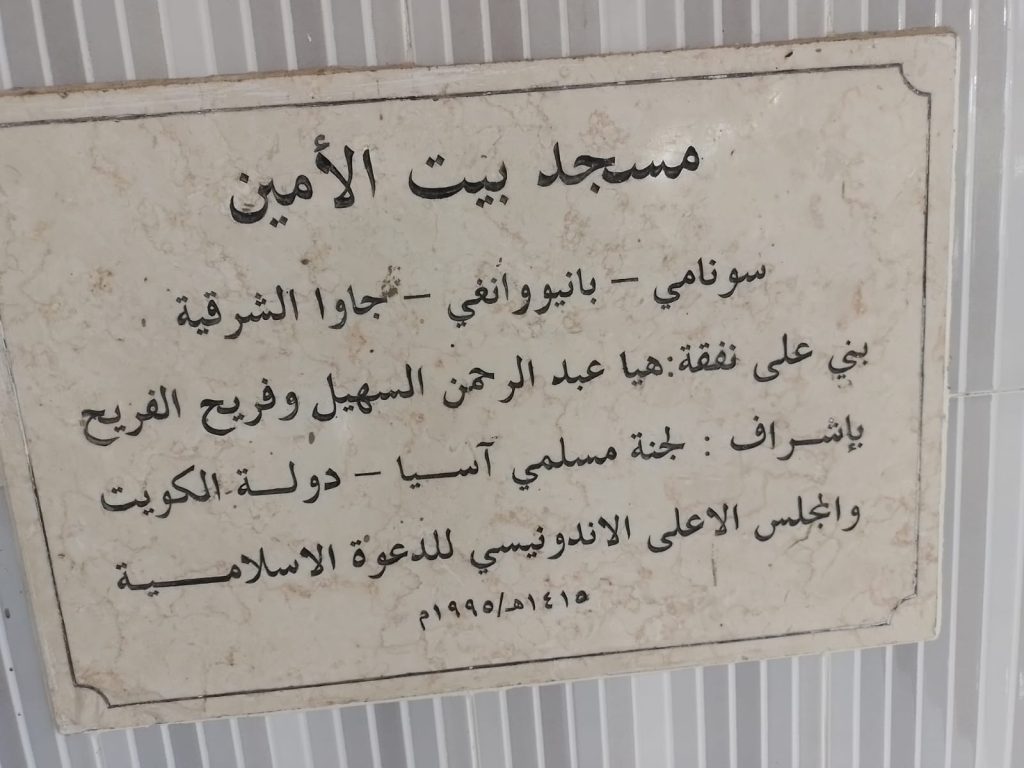 مسجد بيت الأمين
سونامي - بانيووانغي - جاوا الشرقية
بني على نفقة: هيا عبد الرحمن السهيل وفريح الفريح
بإشراف : لجنة مسلمي آسيا - دولة الكويت
والمجلس الاعلى الاندونيسي للدعوة الاسلامية
١٤١٥هـ/١٩٩٥م